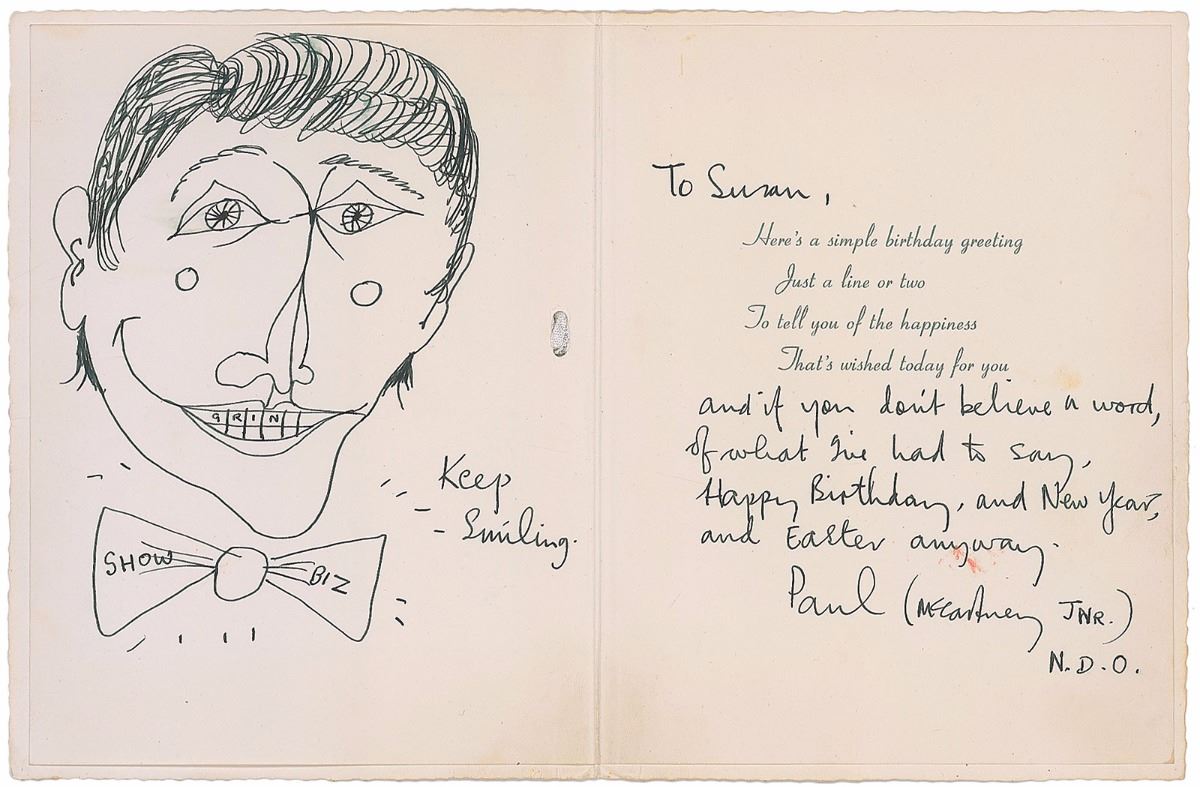 GRIN
Keep
Smiling.
SHOW BIZ
To Susan,
Here's a simple birthday greeting
Just a line or two
To tell you of the happiness
That's wished today for you
and if you don't believe a word,
of what I've had to say,
Happy Birthday, and New Year,
and Easter anyway.
Paul (McCartney JNR.)
N.D.O.